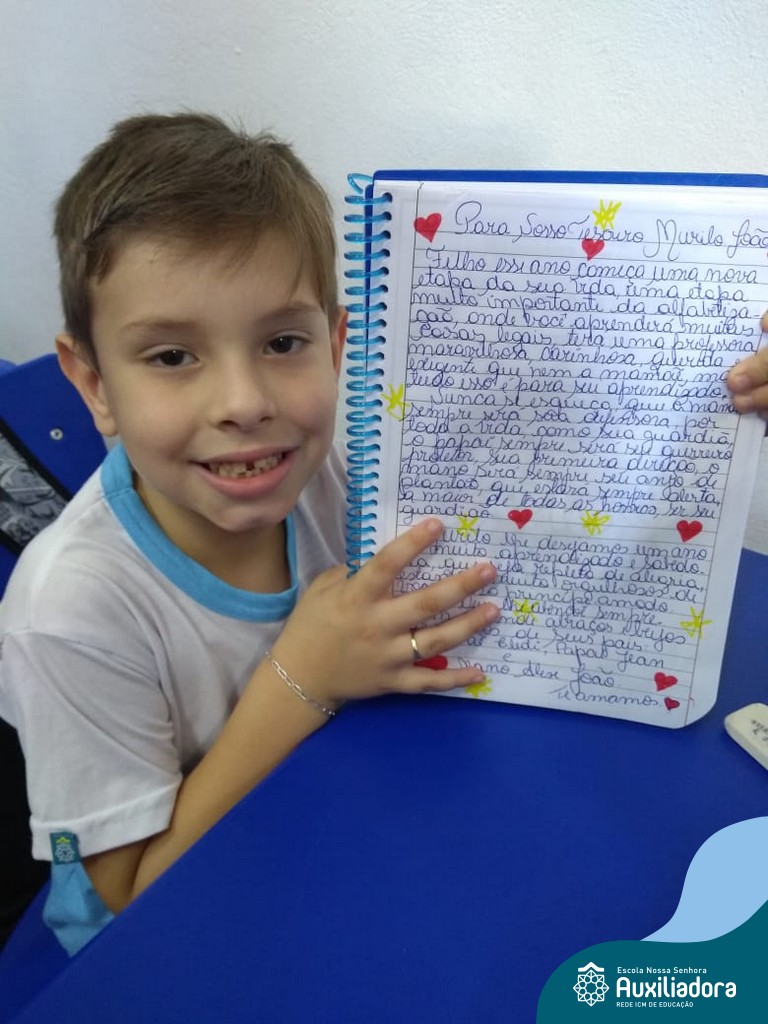 Para Nosso Tesouro Murilo João
Filho esse ano começa uma nova
etapa da sua vida, uma etapa
muito importante da alfabetiza-
ção, onde você aprenderá muitas
coisas legais, terá uma professora
maravilhosa, carinhosa, querida e
exigente que nem a mamãe, mas
tudo isso é para seu aprendizado.
Nunca se esqueça que a mamãe
sempre será sua defensora por
toda a vida, como sua guardiã,
o papai sempre será seu guerreiro
proteter sua primeira direção, o
mano sera sempre seu anjo de
plantão, que estará sempre alerta,
a maior de todas as honras, ser seu
guardião.
Murilo lhe desejamos um ano
muito aprendizado e sabedo
que repleto de alegria,
muito orgulhosos de
príncipe amado
sempre
abraços e beijos
de seus pais
Papai Jean
e
Mano Alex João
Te amamos
Escola Nossa Senhora
Auxiliadora
REDE ICM DE EDUCAÇÃO